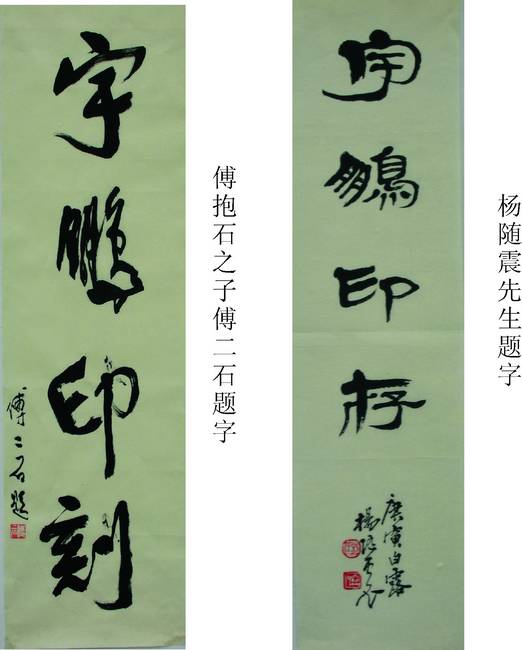 宇鹏印刻
傅二石题
傅抱石之子傅二石题字
宇鵬印存
庚寅白露
杨随震先生题字